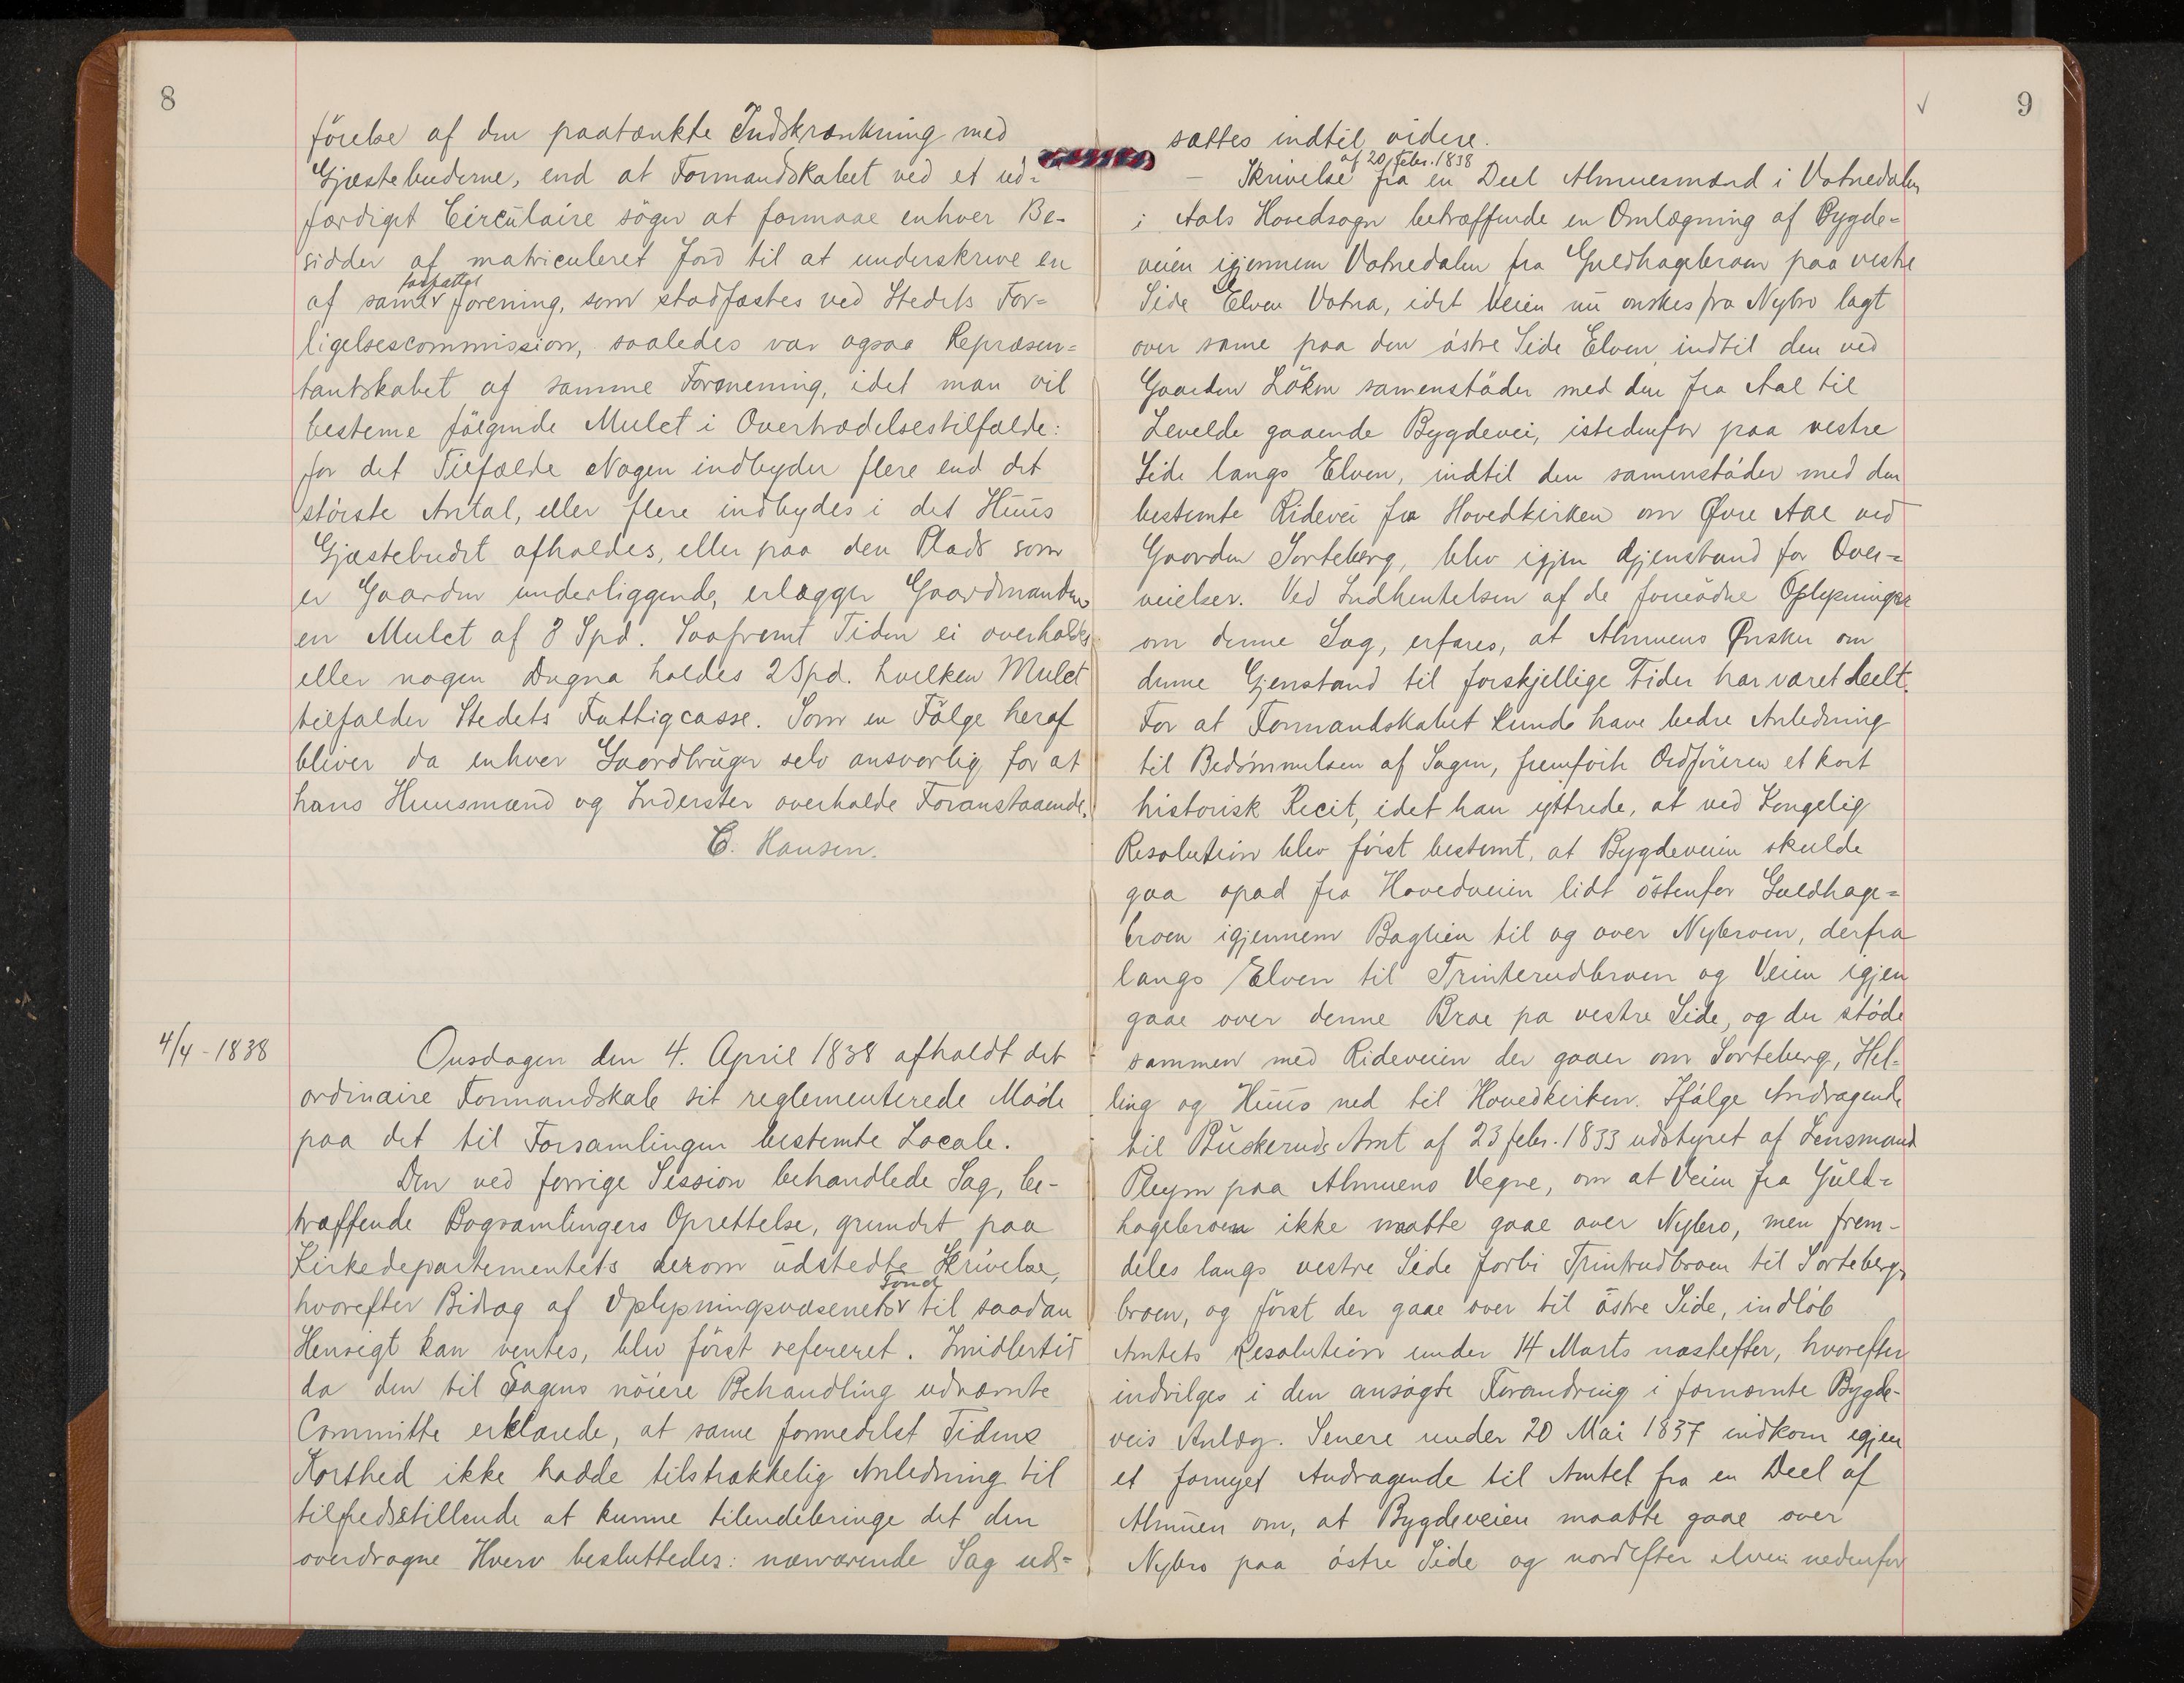 8
förelse af den paatænkte Indskrænkning med
Gjæstebuderne, end at Formandskabet ved et ud-
færdiget Circulaire söger at formaae enhver Be-
sidder af matriculeret Jord til at underskrive en
forfattet
af same forening, som stadfæstes ved Stedets For-
ligelsescommission, saaledes var ogsaa Repræsen-
tantskabet af samme Formening, idet man vil
besteme fölgende Mulct i Overtrædelsestilfælde:
for det Tilfælde Nogen indbyder flere end det
störste Antal, eller flere indbydes i det Huus
Gjæstebudet afholdes, eller paa den Plads som
er Gaarden underliggende, erlægger Gaardmanden
en Mulct af 3 Spd. Saafremt Tiden ei overholdes
eller nogen Dugna holdes 2 Spd. hvilken Mulct
tilfalder Stedets Fattigcasse. Som en Fölge heraf
bliver da enhver Gaardbruger selv ansvarlig for at
hans Huusmænd og Inderster overholde Foranstaaende.
C. Hansen.
4/4-1838
Onsdagen den 4. April 1838 afholdt det
ordinaire Formandskab sit reglementerede Möde
paa det til Forsamlingen bestemte Locale.
Den ved forrige Session behandlede Sag, be-
træffende Bogsamlingers Oprettelse, grundet paa
Kirkedepartementets derom udstedte Skrivelse,
Fond
hvorefter Bidrag af Oplysningsvæsenets til saadan
Hensigt kan ventes, blev först refereret. Imidlertid
da den til Sagens nöiere Behandling udnævnte
Committe erklærede, at same formedelst Tidens
Korthed ikke hadde tilstrækkelig Anledning til
tilfredsstillende at kunne tilendebringe det den
overdragne Hverv besluttedes: nærværende Sag ud-
9
sættes indtil videre.
af 20 febr. 1838
- Skrivelse fra en Deel Almuesmænd i Votnedalen
i Aals Hovedsogn betræffende en Omlægning af Bygde-
veien igjennem Votnedalen fra Guldhagebroen paa vestre
Side Elven Votna, idet Veien nu önskes fra Nybro lagt
over same paa den östre Side Elven indtil den ved
Gaarden Löken samenstöder med den fra Aal til
Levelde gaaende Bygdevei, istedenfor paa vestre
Side langs Elven, indtil den samenstöder med den
bestemte Ridevei fra Hovedkirken om Øvre Aal ved
Gaarden Sorteberg, blev igjen Gjenstand for Over-
veielser. Ved Indhentelsen af de fornödne Oplysninger
om denne Sag, erfares, at Almuens Ønsker om
denne Gjenstand til forskjellige Tider har været deelt.
For at Formandskabet kunde have bedre Anledning
til Bedömmelsen af Sagen, fremförte Ordföreren et kort
historisk Recit, idet han yttrede, at ved Kongelig
Resolution blev först bestemt, at Bygdeveien skulde
gaa opad fra Hovedveien lidt östenfor Guldhage-
broen igjennem Baglien til og over Nybroen, derfra
langs Elven til Trinterudbroen og Veien igjen
gaae over denne Broe pa vestre Side, og der stöde
sammen med Rideveien der gaaer om Sorteberg, Hel-
ling og Huus ned til Hovedkirken. Ifölge Andragende
til Buskeruds Amt af 23 febr. 1833 udstyret af Lensmand
Pleym paa Almuens Vegne, om at Veien fra Guld-
hagebroen ikke maatte gaae over Nybro, men frem-
deles langs vestre Side forbi Trintrudbroen til Sorteberg
broen, og först der gaae over til östre Side, indlöb
Amtets Resolution under 14 Marts næstefter, hvorefter
indvilges i den ansögte Forandring i fornævnte Bygde-
veis Anlæg. Senere under 20 Mai 1837 indkom igjen
et fornyet Andragende til Amtet fra en Deel af
Almuen om, at Bygdeveien maatte gaae over
Nybro paa östre Side og nordefter elven nedenfor